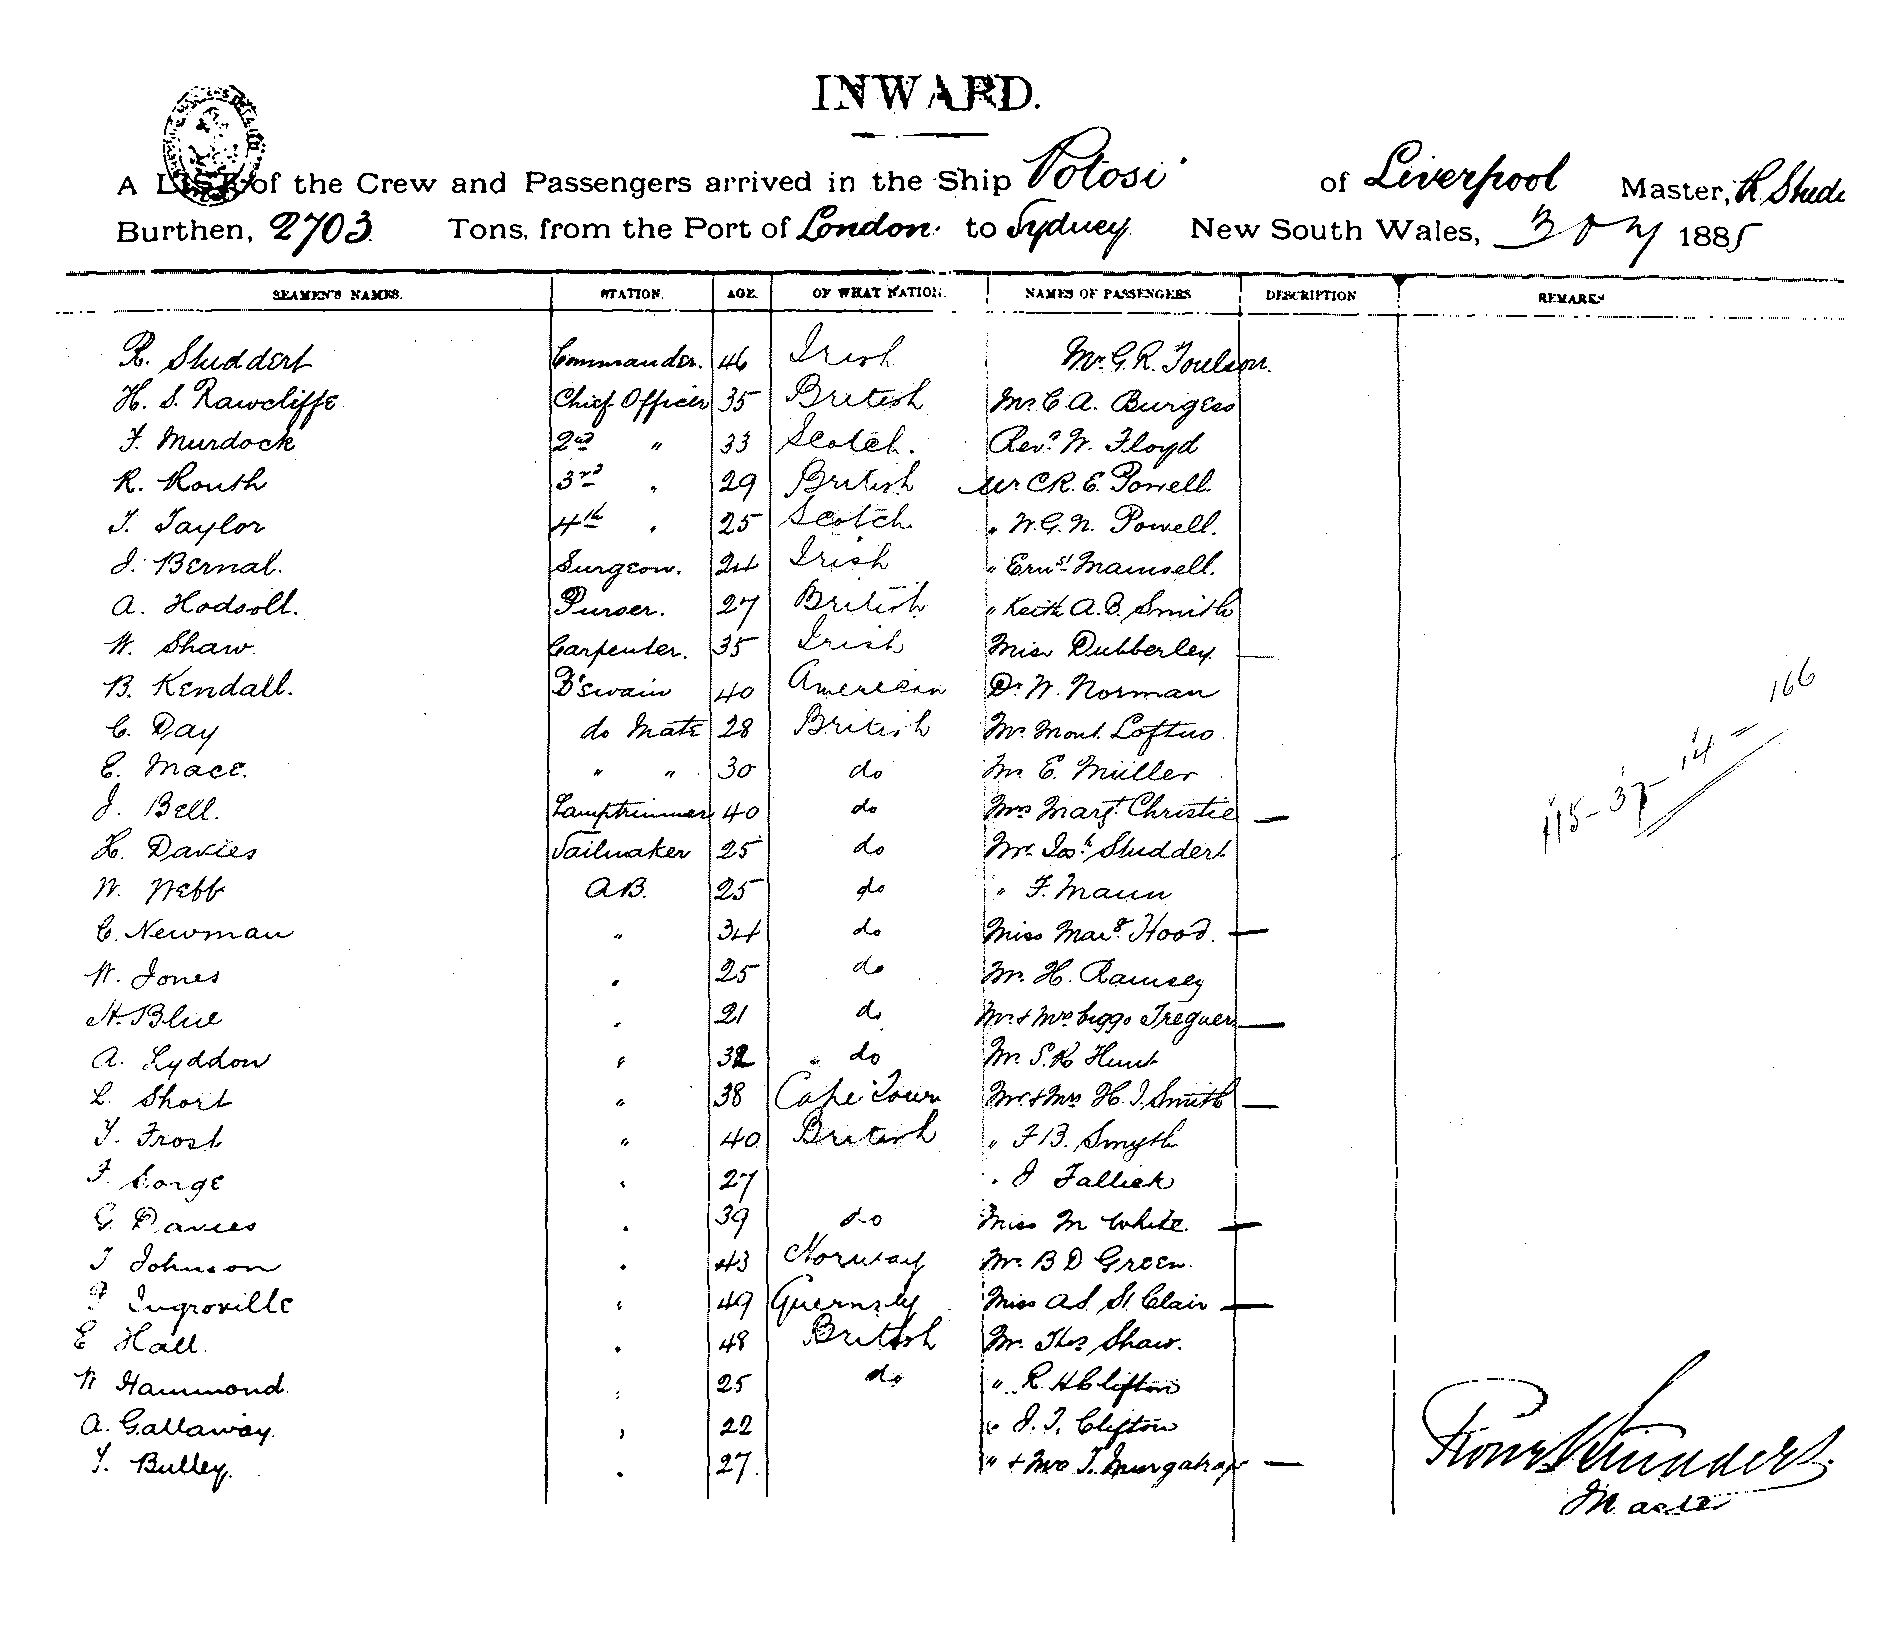 INWARD.
A LIST of the Crew and Passengers arrived in the Ship Potosi of Liverpool Master, R Stude
Burthen, 2703 Tons, from the Port of London to Sydney New South Wales, 1885
SEAMEN'S NAMES. STATION. AGE. OF WHAT NATION. NAMES OF PASSENGERS DESCRIPTION REMARKS
R. Studdert Commander. 46 Irish Mr. G. R. Toulson.
H. S. Rawcliffe Chief Officer 35 British Mr C A. Burgess
F. Murdock 2nd " 33 Scotch. Revd. W. Floyd
R. Routh 3rd " 29 British Mr C R. E. Powell
T. Taylor 4th " 25 Scotch " W. G. N. Powell.
J. Bernal. Surgeon. 24 Irish " Ernst Mamsell.
A. Hodsoll. Purser. 27 British " Keith A. B. Smith
W. Shaw. Carpenter. 35 Irish Miss Dubberley —
B. Kendall. B'swain 40 American Dr. W. Norman
C. Day do Mate 28 British Mr. Mont. Loftus
E. Mace. " " 30 do Mr E. Müller
J. Bell. Lamptrimmer 40 do Mrs Margt. Christie —
H. Davies Sailmaker 25 do Mr. Josh. Studdert
W. Webb A.B. 25 do " F. Mann
C. Newman " 34 do Miss Mart. Hood. —
W. Jones " 25 do Mr. H. Ramsey
H. Blue " 21 do Mr. & Mrs Treguer —
A. Lyddon " 32 " do Mr. S. R. Hunt
L. Short " 38 Cape Town Mr. & Mrs H. J. Smith —
T. Frost " 40 British " F B. Smyth
F. Sorge " 27 " J Fallick
G. Davies " 39 do Miss M White. —
T Johnson " 43 Norway Mr. B D Green.
P Ingroville " 49 Guernsey Miss A S. St Clair —
E Hall. " 48 British Mr. Thos Shaw.
W Hammond. " 25 do " R H Clifton
A. Gallaway. " 22 " J. T. Clifton
T. Bulley. " 27. " & Mrs T. —
115 - 37 - 14 - 166
Studdert.
Master